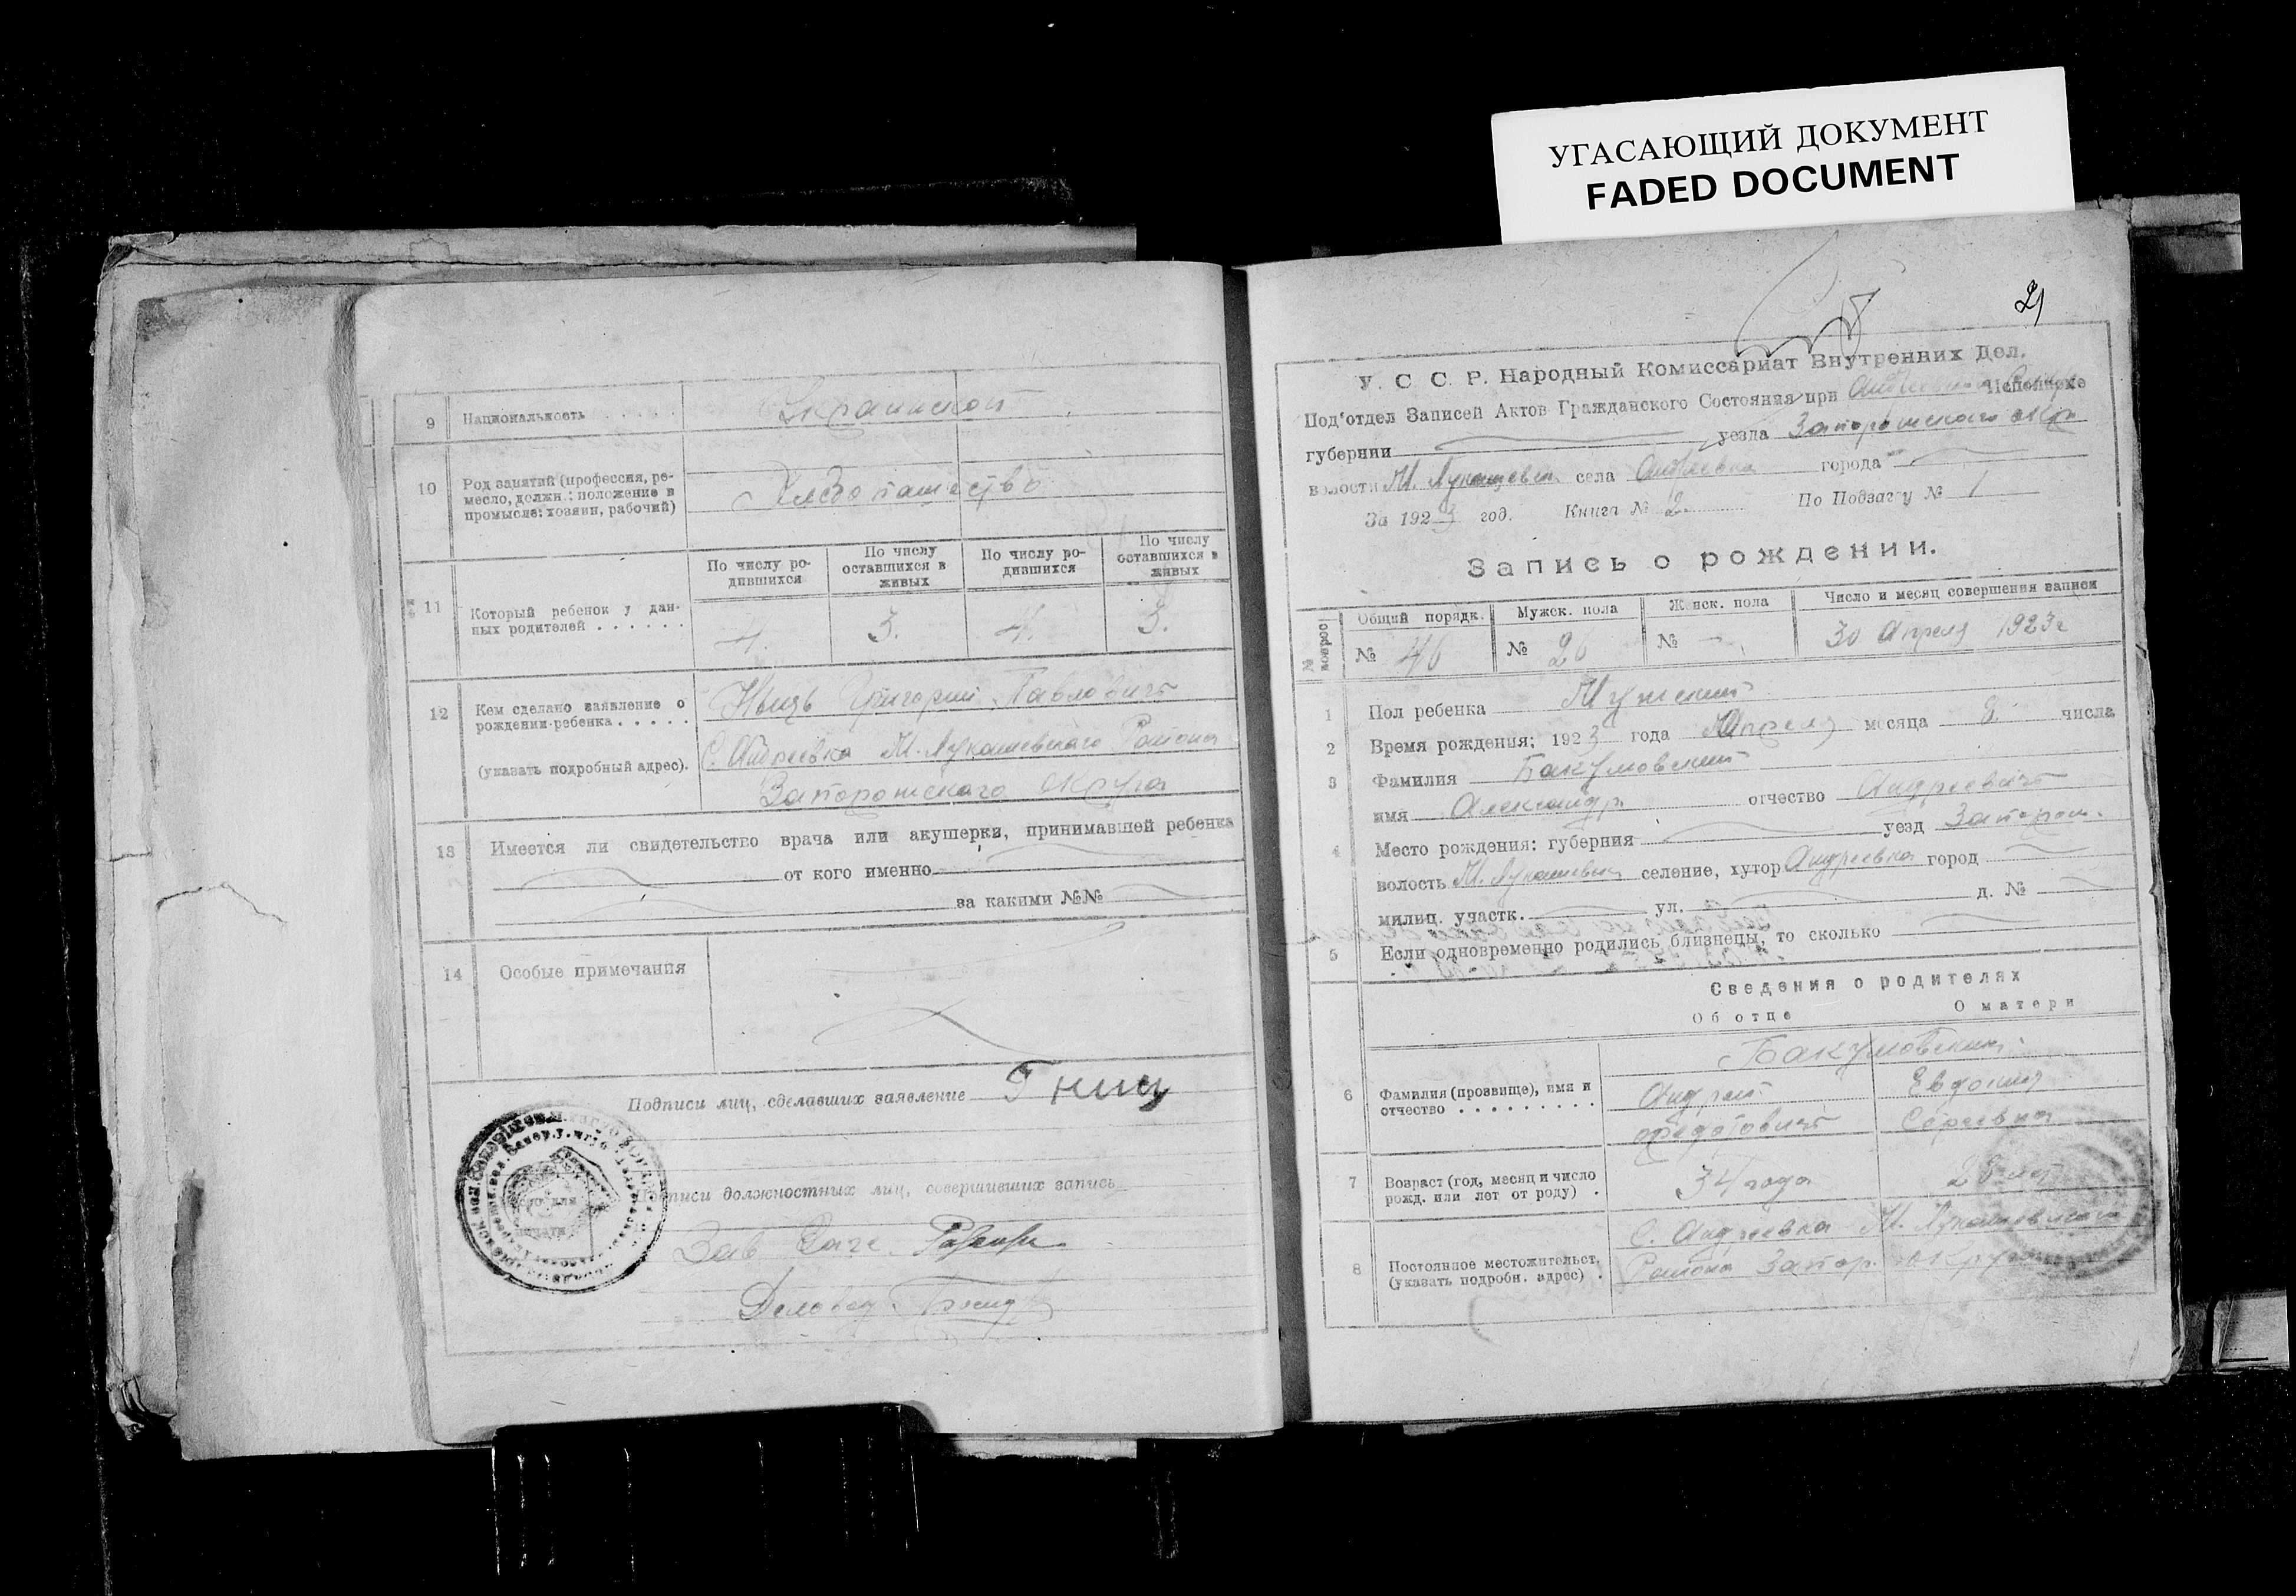 УГАСАЮЩИЙ ДОКУМЕНТ
FADED DOCUMENT
9 Национальность Украинской
10 Род занятий (профессия, ре-
месло, должн.: положение в
промысле: хозяин, рабочий)
Хлебопашество
11 Который ребенок у дан-
ных родителей . . . . . .
По числу ро-
дившихся
По числу
оставшихся в
живых
По числу ро-
дившихся
По числу
оставшихся в
живых
4. 3. 4. 3.
12 Кем сделано заявление о
рождении ребенка . . . . .
(указать подробный адрес).
Григорий Павлович
С. Андреевка М. Лукашевского Района
Запорожского Округа
13 Имеется ли свидетельство врача или акушерки, принимавшей ребенка
от кого именно
за какими №№
14 Особые примечания
Подписи лиц, сделавших заявление
Подписи должностных лиц, совершивших запись
Зав
Деловод
21
У. С. С. Р. Народный Комиссариат Внутренних Дел.
Под'отдел Записей Актов Гражданского Состояния при Исполкоме
губернии уезда Запорожского окр
волости М. Лукашевск села Андреевка города
За 1923 год. Книга № 2. По Подзагсу № 1
Запись о рождении.
№ вопрос.
Общий порядк. Мужск. пола Женск. пола Число и месяц совершения записи
№ 46 № 26 № 30 Апреля 1923 г
1 Пол ребенка Мужский
2 Время рождения: 1923 года Апреля месяца 8 числа
3 Фамилия Бакумовский
имя Александр отчество Андреевич
4 Место рождения: губерния уезд Запорож.
волость М. Лукашевск селение, хутор Андреевка город
милиц. участк. ул. д. №
5 Если одновременно родились близнецы, то сколько
Сведения о родителях
Об отце О матери
6 Фамилия (прозвище), имя и
отчество . . . . . . . . .
Бакумовский
Андрей Евдокия
Федотович
7 Возраст (год, месяц и число
рожд. или лет от роду) .
34 года 28 лет
8 Постоянное местожительст.
(указать подробн. адрес) .
С. Андреевка М. Лукашевского
Района Запор. округа